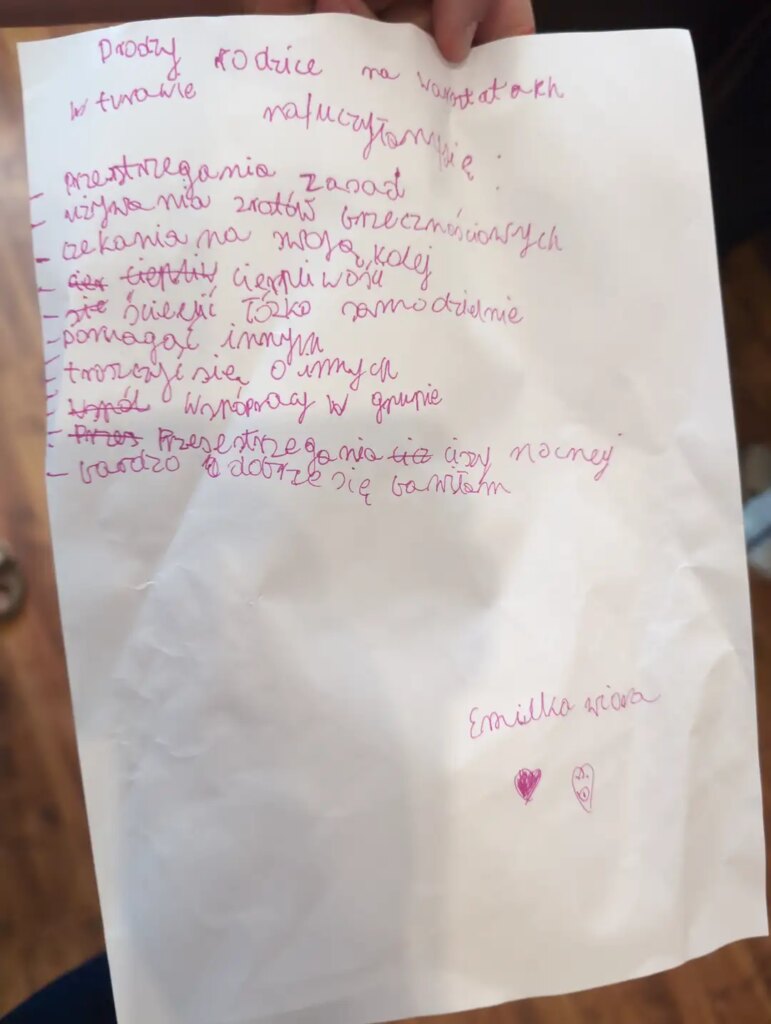 Drodzy rodzice na warsztatach
w turawie
na/uczyłam się :
- przestrzegania zasad
- używania zrotów grzecznościowych
- czekania na swoją kolej
- cierpliwości
- ścielić łóżko samodzielnie
- pomagać innym
- troszczyć się o innych
- współpracy w grupie
- Przesestrzegania ciszy nocnej
- bardzo dobrze się bawiłam
Emilka